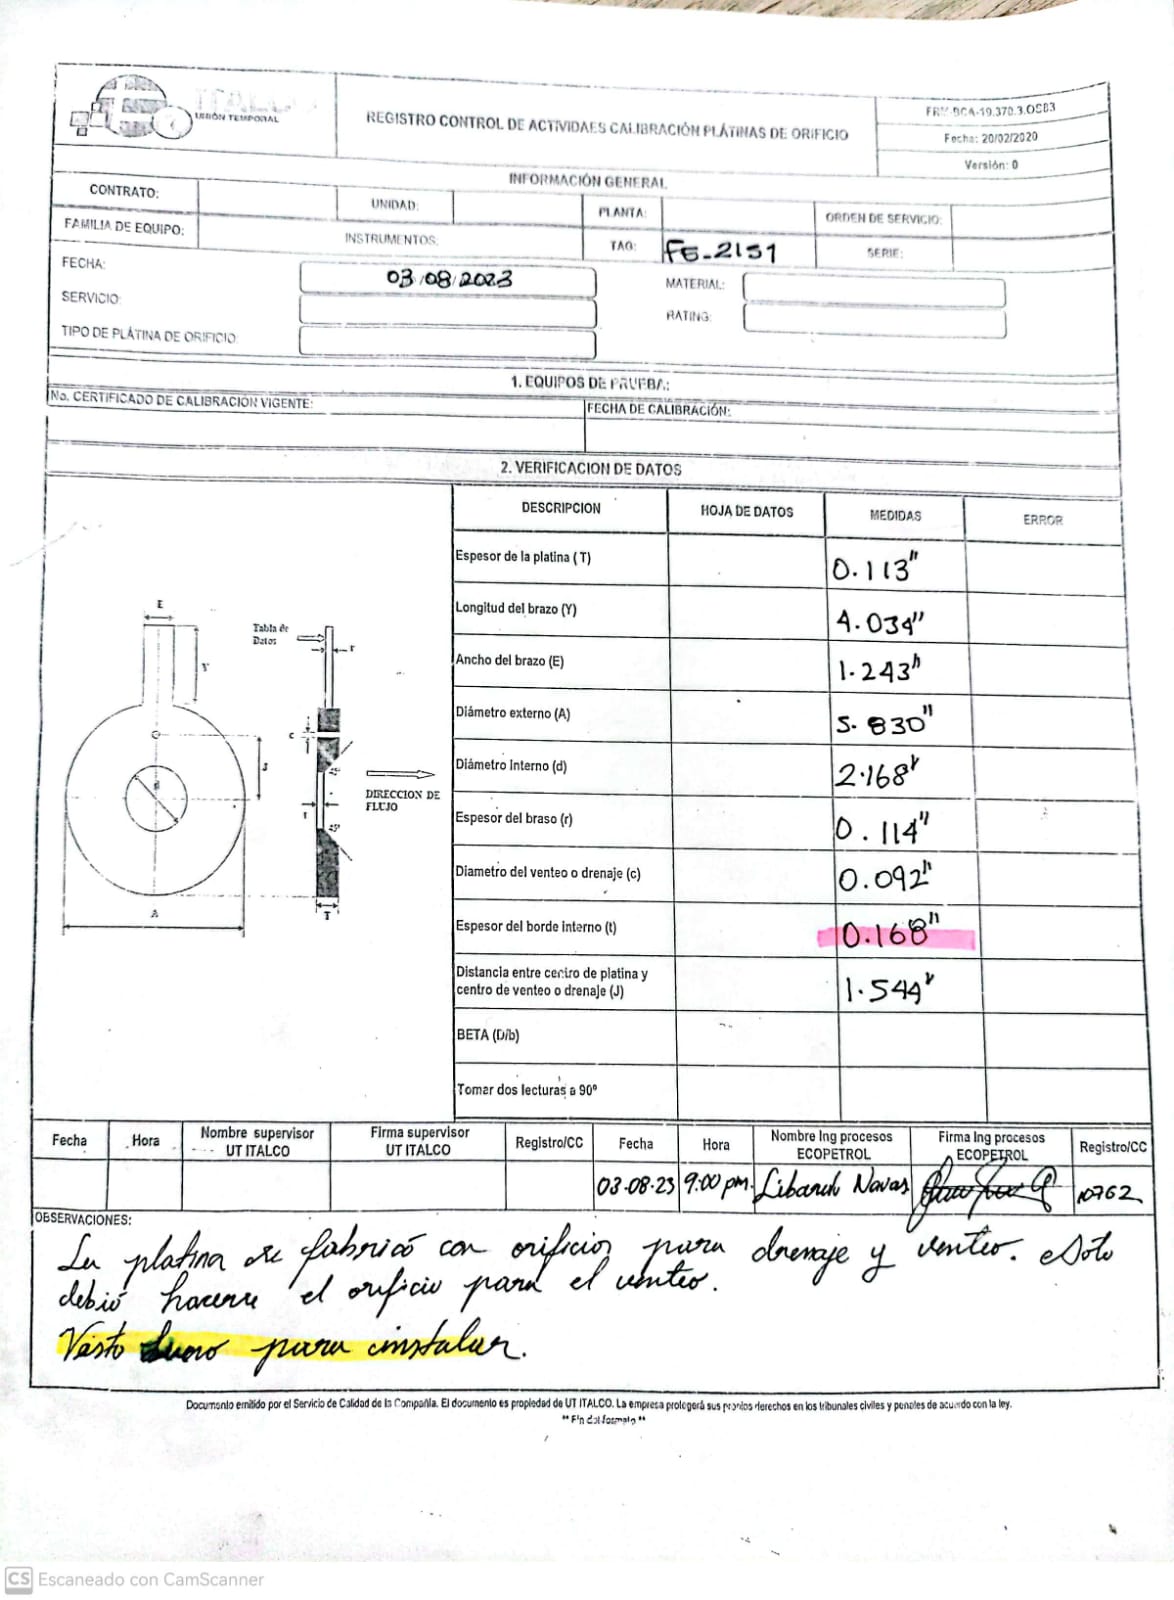 ITALCO
UNIÓN TEMPORAL
REGISTRO CONTROL DE ACTIVIDAES CALIBRACIÓN PLATINAS DE ORIFICIO
FRM-BCA-19.370.3.OSB3
Fecha: 20/02/2020
Versión: 0
INFORMACIÓN GENERAL
CONTRATO: UNIDAD: PLANTA: ORDEN DE SERVICIO:
FAMILIA DE EQUIPO: INSTRUMENTOS TAG: FE-2151 SERIE:
FECHA: 03/08/2023 MATERIAL:
SERVICIO: RATING:
TIPO DE PLATINA DE ORIFICIO
1. EQUIPOS DE PRUEBA:
No. CERTIFICADO DE CALIBRACIÓN VIGENTE: FECHA DE CALIBRACIÓN:
2. VERIFICACION DE DATOS
DESCRIPCION HOJA DE DATOS MEDIDAS ERROR
Espesor de la platina (T) 0.113"
Longitud del brazo (Y) 4.034"
Ancho del brazo (E) 1.243"
Diámetro externo (A) 5.830"
Diámetro Interno (d) 2.168"
Espesor del braso (r) 0.114"
Diametro del venteo o drenaje (c) 0.092"
Espesor del borde interno (t) 0.168"
Distancia entre centro de platina y
centro de venteo o drenaje (J) 1.544"
BETA (D/b)
Tomar dos lecturas a 90º
E
Tabla de
Datos
r
Y
c
J
45°
d
DIRECCION DE
FLUJO
t
45°
A
T
Fecha Hora Nombre supervisor UT ITALCO Firma supervisor UT ITALCO Registro/CC Fecha Hora Nombre Ing procesos ECOPETROL Firma Ing procesos ECOPETROL Registro/CC
03-08-23 9:00 pm. Libardo Navas 10762
OBSERVACIONES:
La platina se fabricó con orificios para drenaje y venteo. Solo
debió hacerse el orificio para el venteo.
Visto bueno para instalar.
Documento emitido por el Servicio de Calidad de la Compañía. El documento es propiedad de UT ITALCO. La empresa protegerá sus propios derechos en los tribunales civiles y penales de acuerdo con la ley.
** Fin del formato **
CS Escaneado con CamScanner